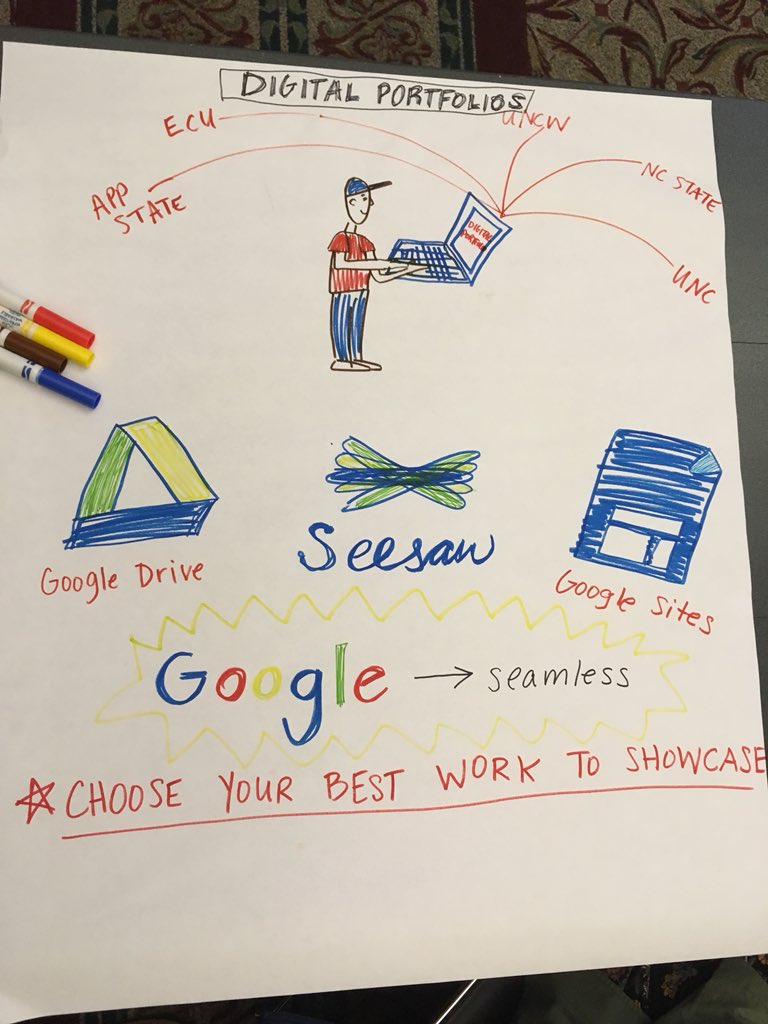 DIGITAL PORTFOLIOS
ECU
UNCW
APP
STATE
NC STATE
DIGITAL
PORTFOLIO
UNC
Google Drive
Seesaw
Google Sites
Google → seamless
☆ CHOOSE YOUR BEST WORK TO SHOWCASE